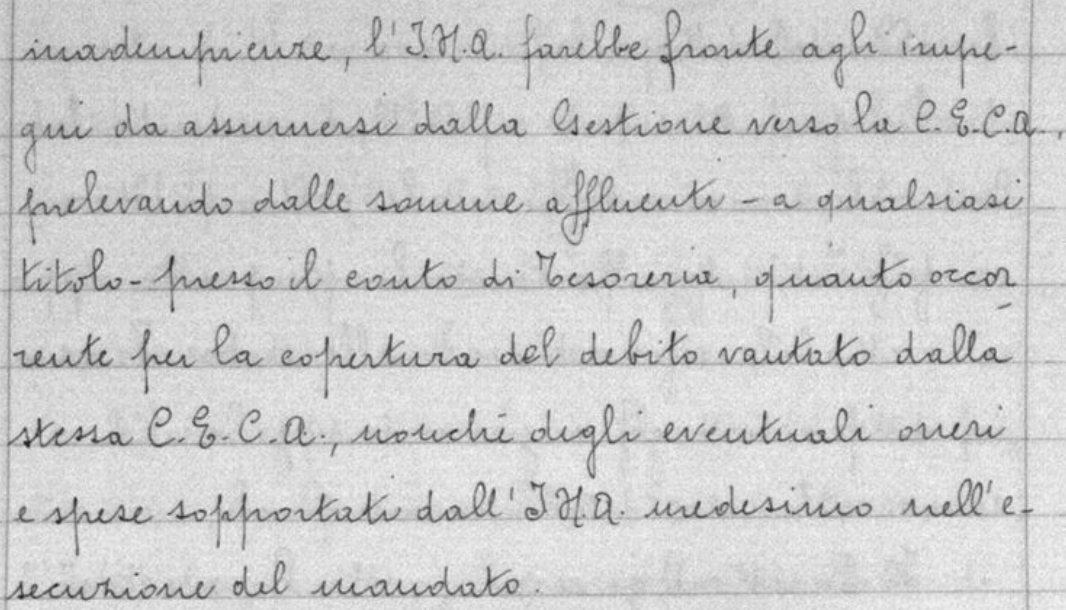 inadempienze, l'I.N.A. farebbe fronte agli impe-
gni da assumersi dalla Gestione verso la C.E.C.A.,
prelevando dalle somme affluenti - a qualsiasi
titolo - presso il conto di Tesoreria, quanto occor
rente per la copertura del debito vantato dalla
stessa C.E.C.A., nonché degli eventuali oneri
e spese sopportati dall'I.N.A. medesimo nell'e-
secuzione del mandato.